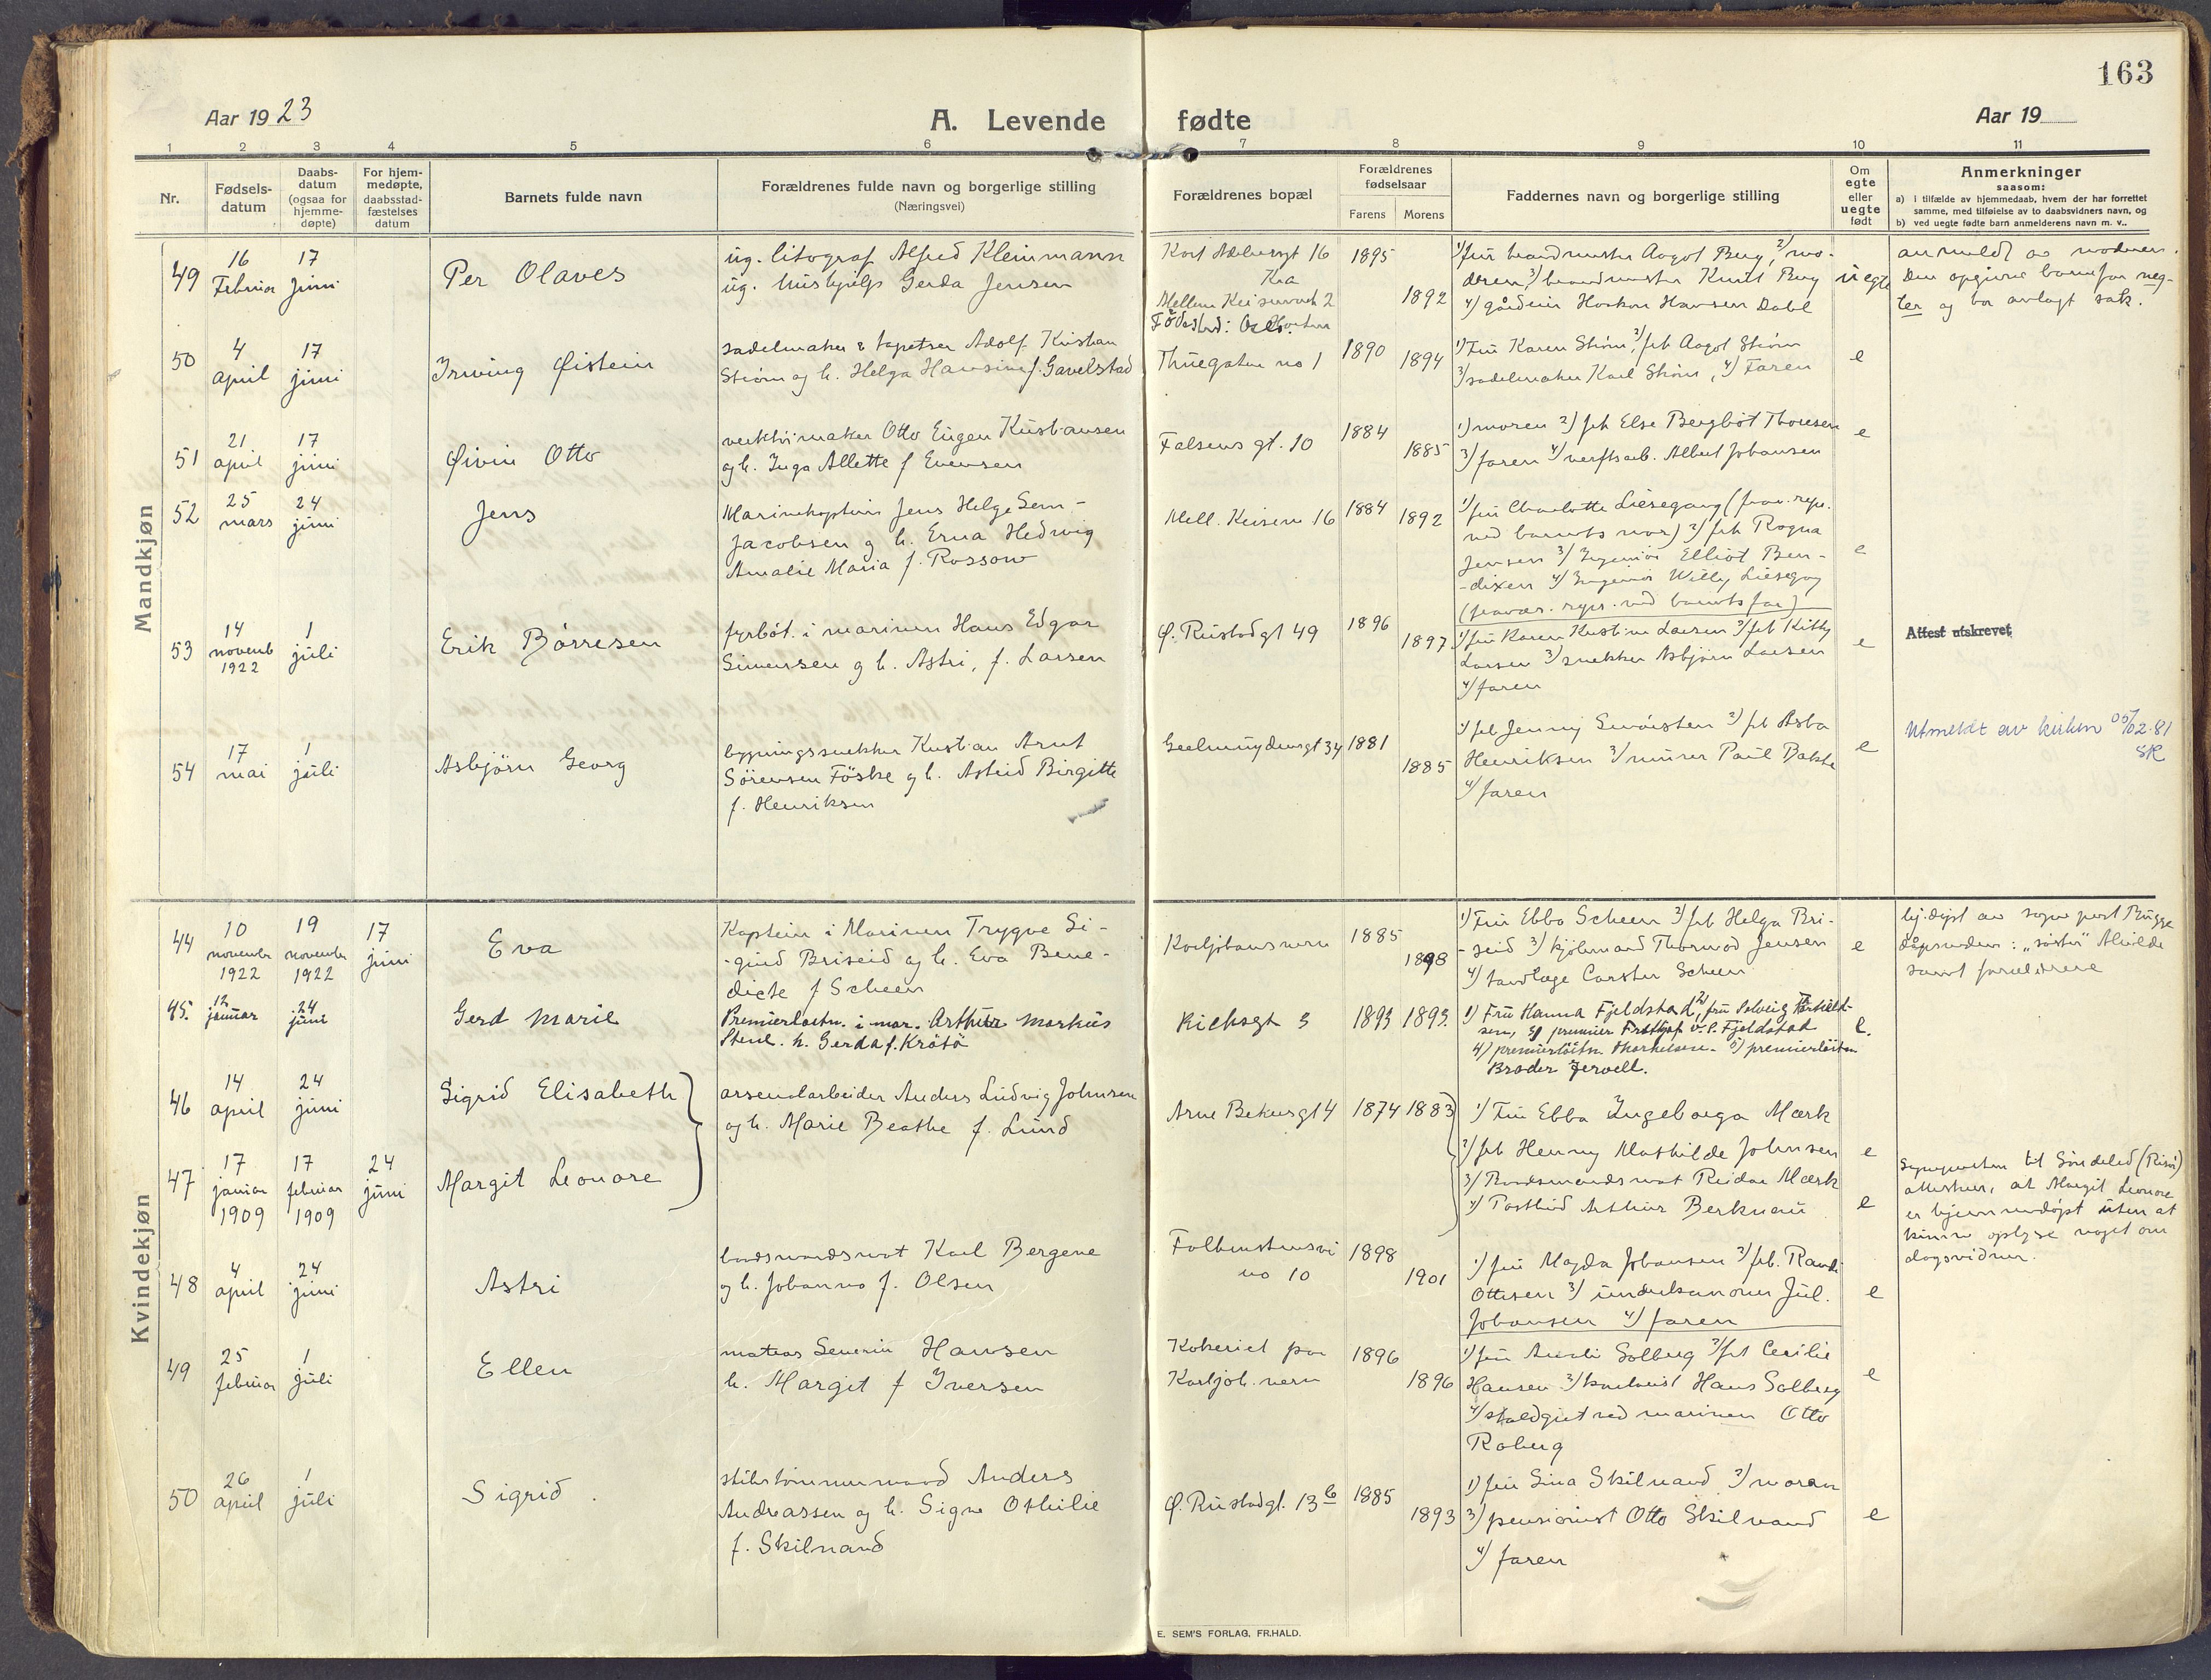 163
Aar 1923
A. Levende fødte
Aar 19
1 2 3 4 5 6 7 8 9 10 11
Nr.
Fødsels-
datum
Daabs-
datum
(ogsaa for
hjemme-
døpte)
For hjem-
medøpte,
daabsstad-
fæstelses
datum
Barnets fulde navn
Forældrenes fulde navn og borgerlige stilling
(Næringsvei)
Forældrenes bopæl
Forældrenes
fødselsaar
Farens Morens
Faddernes navn og borgerlige stilling
Om
egte
eller
uegte
født
Anmerkninger
saasom:
a) i tilfælde av hjemmedaab, hvem der har forrettet
samme, med tilføielse av to daabsvidners navn, og
b) ved uegte fødte barn anmelderens navn m. v..
Mandkjøn
49
16
Februar
17
juni
Per Olaves
ug. litograf Alfred Kleinmann
ug. hushjelp Gerda Jensen
16
Kra
Mellem 2
Födested:
1895
1892
1) fru Aagot Berg, 2) mo-
deren, 3) Knut Berg
4) Haakon Hansen Dahl
uegte
anmeldt av moderen.
Den opgivne barnefar neg-
ter og har anlagt sak.
50
4
april
17
juni
Irwing Øistein
sadelmaker & tapetser Adolf Kristian
Strøm og h. Helga Hansine f. Gavelstad
Thuegaten no 1
1890
1894
1) Fru Karen Strøm, 2) frk Aagot Strøm
3) sadelmaker Karl Strøm, 4) Faren
e
51
21
april
17
juni
Øivin Otto
verktøimaker Otto Eugen Kristiansen
og h. Inga Allette f Evensen
Falsens gt. 10
1884
1885
1) moren 2) frk Else Bergliot Thoresen
3) faren 4) verftsarb. Albert Johansen
e
52
25
mars
24
juni
Jens
Marinekaptein Jens Helge Sem-
Jacobsen og h. Erna Hedvig
Amalie Maria f. Rossow
Mell. Keisem 16
1884
1892
1) fru Charlotte Liesegang (frav. repr.
ved barnets mor) 2) frk Ragna
Jensen 3) Ingeniør Elliot Ben-
-dixen 4) Ingeniør Willy Liesegang
(fravær. repr. ved barnets far)
e
53
14
novemb
1922
1
juli
Erik Børresen
fyrbøt. i marinen Hans Edgar
Simensen og h. Astri, f. Larsen
Ø. Rustadgt 49
1896
1897
1) fru Karen Kristine Larsen 2) frk Kitty
Larsen 3) snekker Asbjørn Larsen
4) faren
e
Attest utskrevet
54
17
mai
1
juli
Asbjörn Georg
bygningssnekker Kristian Arnt
Sörensen Föske og h. Astrid Birgitte
f. Henriksen
Geelmuydensgt 34
1881
1885
1) frk Jenny 2) frk Asta
Henriksen 3) murer Paul Bakke
4) faren
e
Utmeldt av kirken 05/02-81
SR
Kvindekjøn
44
10
november
1922
19
november
1922
17
juni
Eva
Kaptein i Marinen Trygve Si-
-gurd Briseid og h. Eva Bene-
dicte f Scheen
Karljohansvern
1885
1898
1) Fru Ebba Scheen 2) frk Helga Bri-
-seid 3) kjøbmand Thormod Jensen
4) tandlæge Carsten Scheen
e
hj.døpt av sogneprest Bugge
dåpsvidner: "søster" Alvilde
samt forældrene
45.
12
januar
24
juni
Gerd Marie
Premierløitn. i mar. Arthur Markus
Stene. h. Gerda f. Kråtö
Ricksgt 3
1893 1893.
1) Fru Hanna Fjeldstad, 2) fru Solveig Thorkild-
sen, 3) premier Frithjof v. P. Fjeldstad
4) premierløitn. Thorkelsen - 5) premierløitn
Broder Jervell.
e.
46
14
april
24
juni
Sigrid Elisabeth
arsenalarbeider Anders Ludvig Johnsen
og h. Marie Beathe f. Lund
Arne Bekersgt 4
1874 1883
1) Fru Ebba Ingeborga Mærk
2) frk Henny Mathilde Johnsen
3) Baadsmandsmat Reidar Mærk
4) Postbud Arthur Berknau
e
47
17
januar
1909
17
februar
1909
24
juni
Margit Leonore
e
Sognepresten til Søndeled (Risør)
attesterer, at Margit Leonore
er hjemmedøpt uten at
kunne oplyse noget om
dagsvidner.
48
4
april
24
juni
Astri
baadsmandsmat Karl Bergene
og h. Johanna f. Olsen
Falkenstensvei
no 10
1898
1901
1) fru Magda Johansen 2) frk. Randi
Ottesen 3) underkanoner Jul.
Johansen 4) faren
e
49
25
februar
1
juli
Ellen
matros Severin Hansen
h. Margit f Iversen
Kokeriet paa
Karljoh. vern
1896
1896
1) fru Solberg 2) frk Cecilie
Hansen 3) Hans Solberg
4) ved marinen Otto
Roberg
e
50
26
april
1
juli
Sigrid.
Anders
Andreassen og h. Signe Othilie
f. Skilnand
Ø. Rustadgt. 13 b
1885
1893
1) fru Sina Skilnand 2) moren
3) pensionist Otto Skilnand
4) faren
e
E. SEM'S FORLAG, FR.HALD.